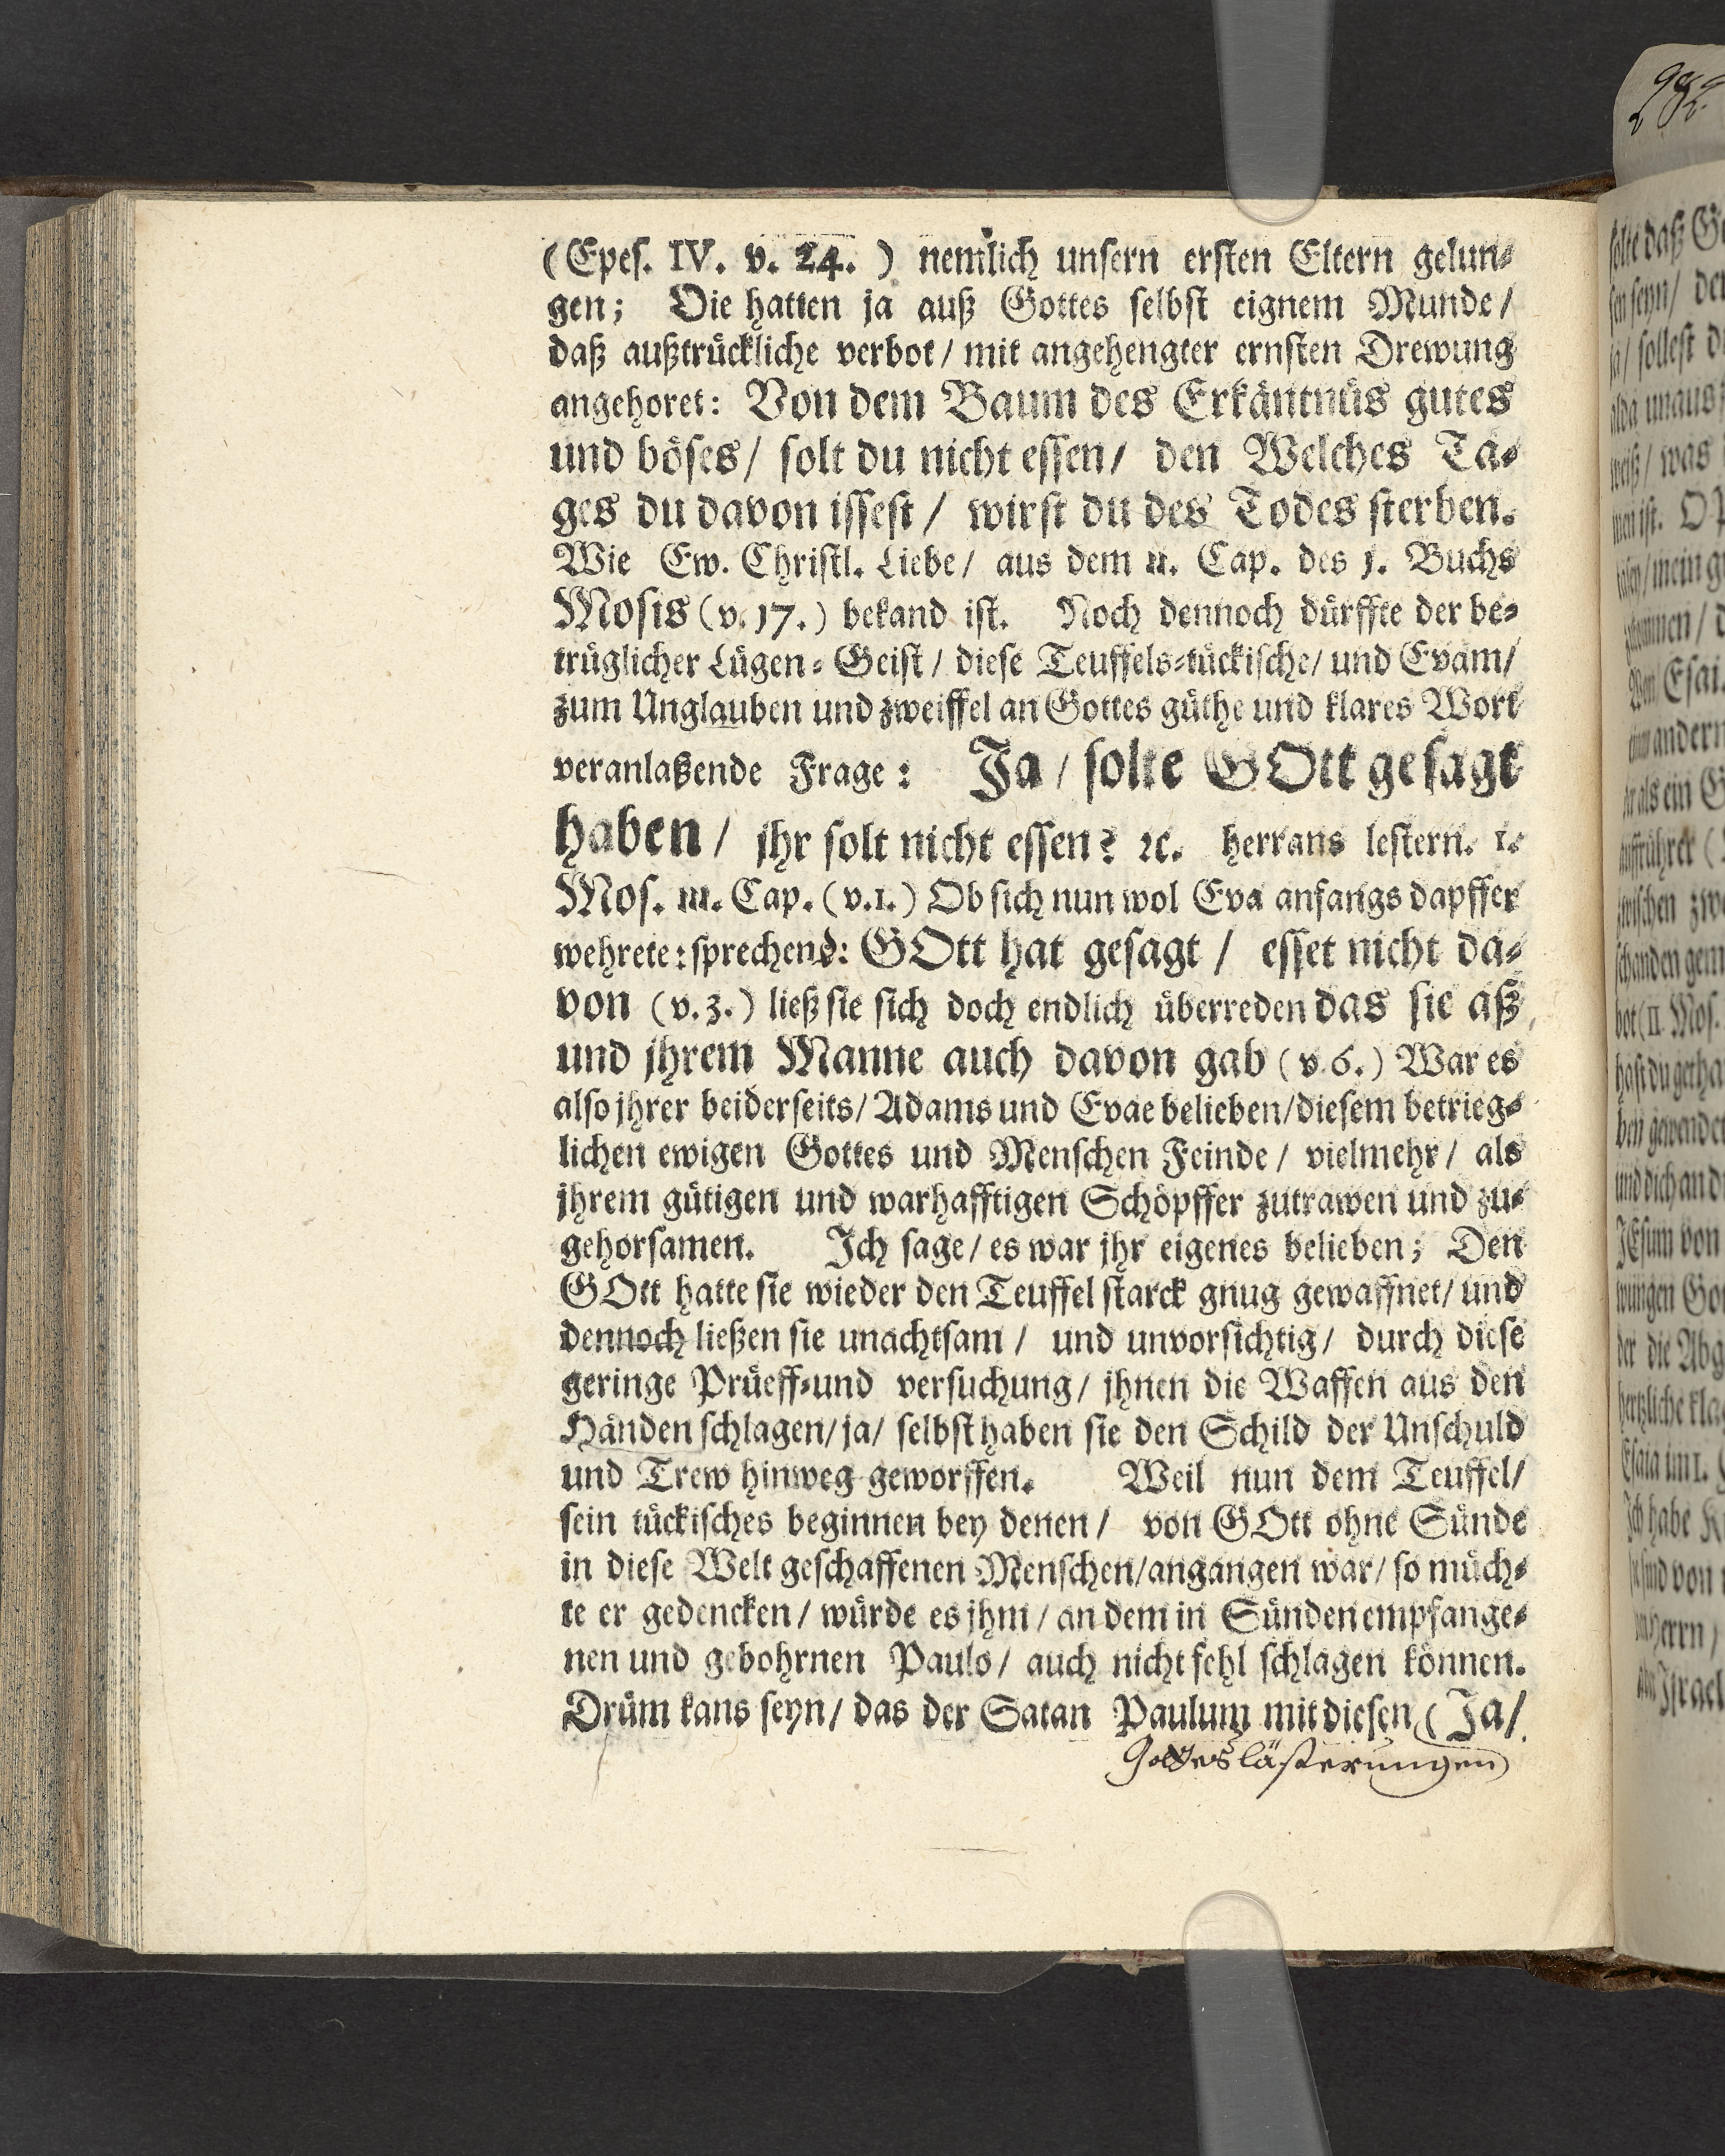 (Epes. IV. v. 24.) nemlich unsern ersten Eltern gelun⸗
gen; Die hatten ja auß Gottes selbst eignem Munde/
daß außtrückliche verbot/ mit angehengter ernsten Drewung
angehoret: Von dem Baum des Erkäntnüs gutes
und böses/ solt du nicht essen/ den Welches Ta⸗
ges du davon issest/ wirst du des Todes sterben.
Wie Ew. Christl. Liebe/ aus dem II. Cap. des 1. Buchs
Mosis (v. 17.) bekand ist. Noch dennoch dürffte der be⸗
trüglicher Lügen⸗Geist/ diese Teuffels⸗tückische/ und Evam/
zum Unglauben und zweiffel an Gottes güthe und klares Wort
veranlaßende Frage: Ja/ solte GOtt gesagt
haben/ jhr solt nicht essen? ꝛc. herrans lestern. 1.
Mos. III. Cap. (v.1.) Ob sich nun wol Eva anfangs dapffer
wehrete: sprechend: GOtt hat gesagt/ esset nicht da⸗
von (v. 3.) ließ sie sich doch endlich überreden das sie aß,
und jhrem Manne auch davon gab (v 6.) War es
also jhrer beiderseits/ Adams und Evae belieben/ diesem betrieg⸗
lichen ewigen Gottes und Menschen Feinde/ vielmehr/ als
jhrem gütigen und warhafftigen Schöpffer zutrawen und zu⸗
gehorsamen. Ich sage/ es war jhr eigenes belieben; Den
GOtt hatte sie wieder den Teuffel starck gnug gewaffnet/ und
dennoch ließen sie unachtsam/ und unvorsichtig/ durch diese
geringe Prüeff⸗und versuchung/ jhnen die Waffen aus den
Händen schlagen/ ja/ selbst haben sie den Schild der Unschuld
und Trew hinweg geworffen. Weil nun dem Teuffel/
sein tückisches beginnen bey denen/ von GOtt ohne Sünde
in diese Welt geschaffenen Menschen/ angangen war/ so müch⸗
te er gedencken/ würde es jhm/ an dem in Sünden empfange⸗
nen und gebohrnen Paulo/ auch nicht fehl schlagen können.
Drüm kans seyn/ das der Satan Paulum mit diesen (Ja/
Gotteslästerungen